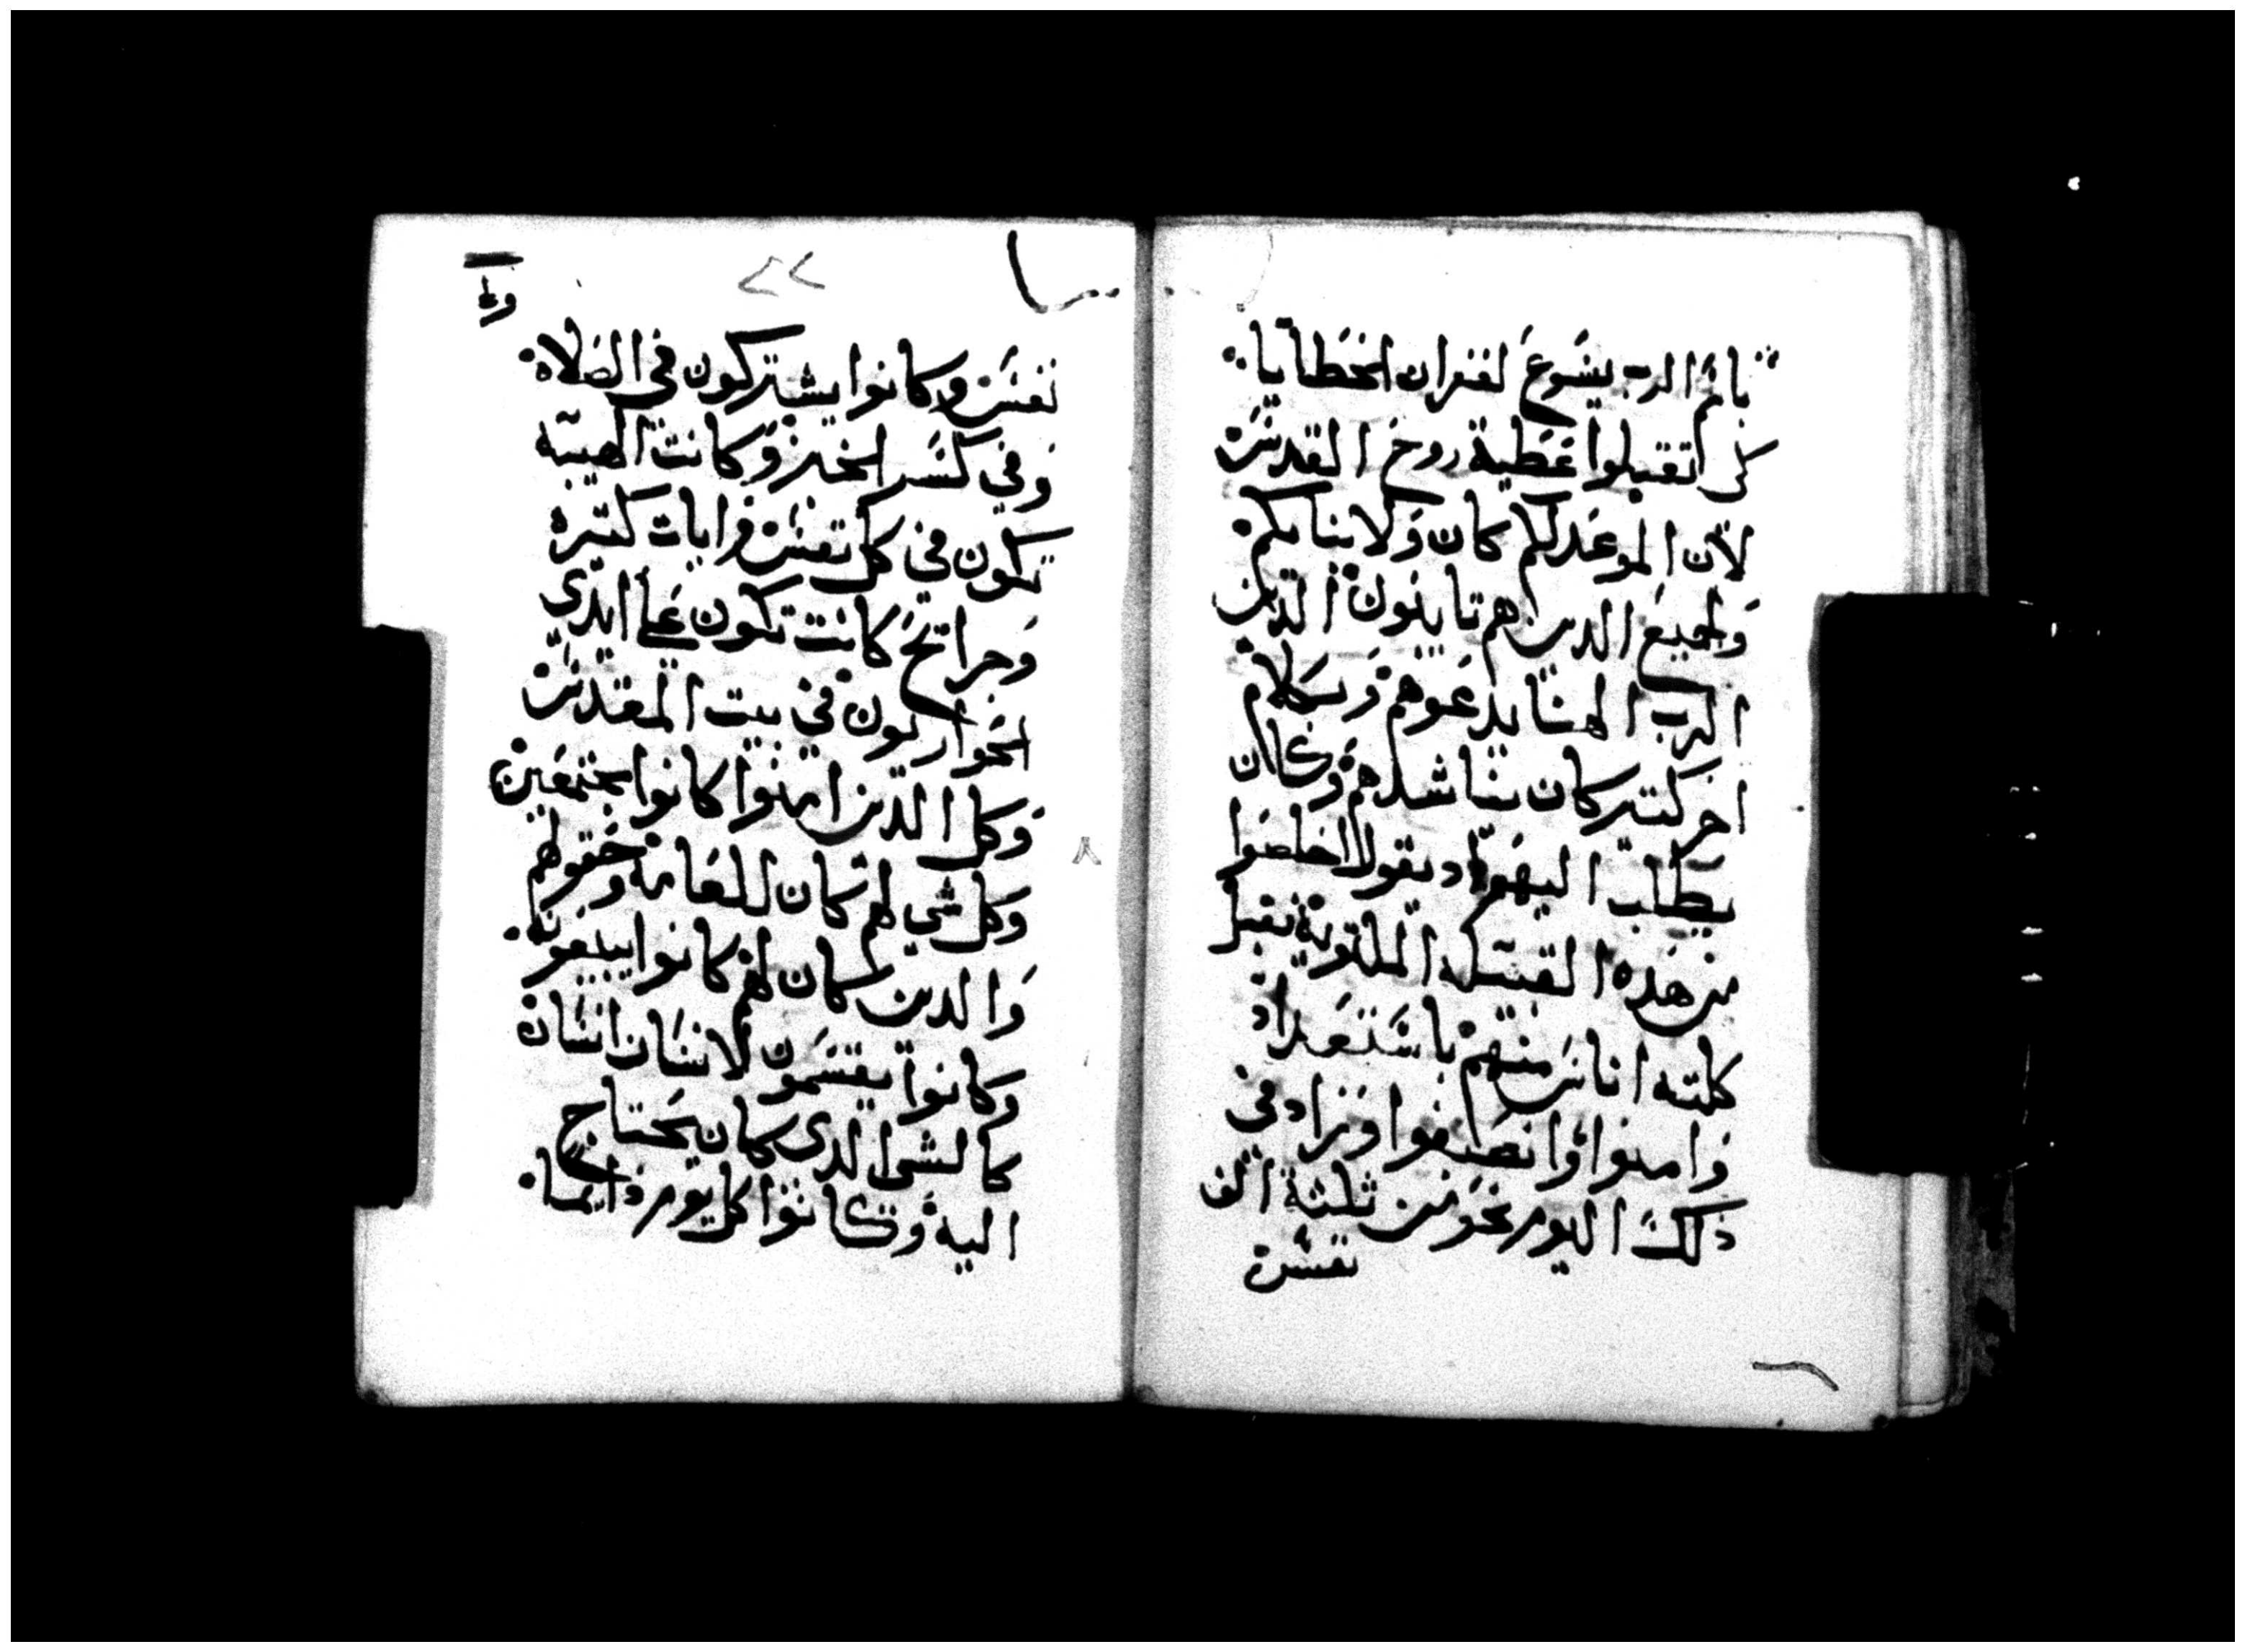 باسم الرب يسوع لغفران الخطايا.
كى تقبلوا عطية روح القدس
لان الموعد لكم كان ولابنايكم
ولجميع الدين هم تايبون الدين
الرب الهنا يدعوهم وبكلام
اخر كتير كان يناشدهم وكان
يطلب اليهم اد يقول اخلصوا
من هده القبيله الملتوية فقبل
كلمته اناس منهم باستعداد
وامنوا وانصبغوا وزاد في
ذلك اليوم نحو من ثلثة الف
نفس
نفس وكانوا يشتركون في الصلاة.
وفي كسر الخبز وكانت الهيبه
تكون في كل نفس وايات كتيره
وجرايح كانت تكون على ايدى
الحواريون في بيت المقدس
وكل الدين امنوا كانوا مجتمعين
وكل شي لهم كان للعامة وحقولهم
والدين كان لهم كانوا يبيعونه.
وكانوا يقسمون لانسان انسان
كالشى الدى كان يحتاج
اليه وكانوا كل يوم دايما.